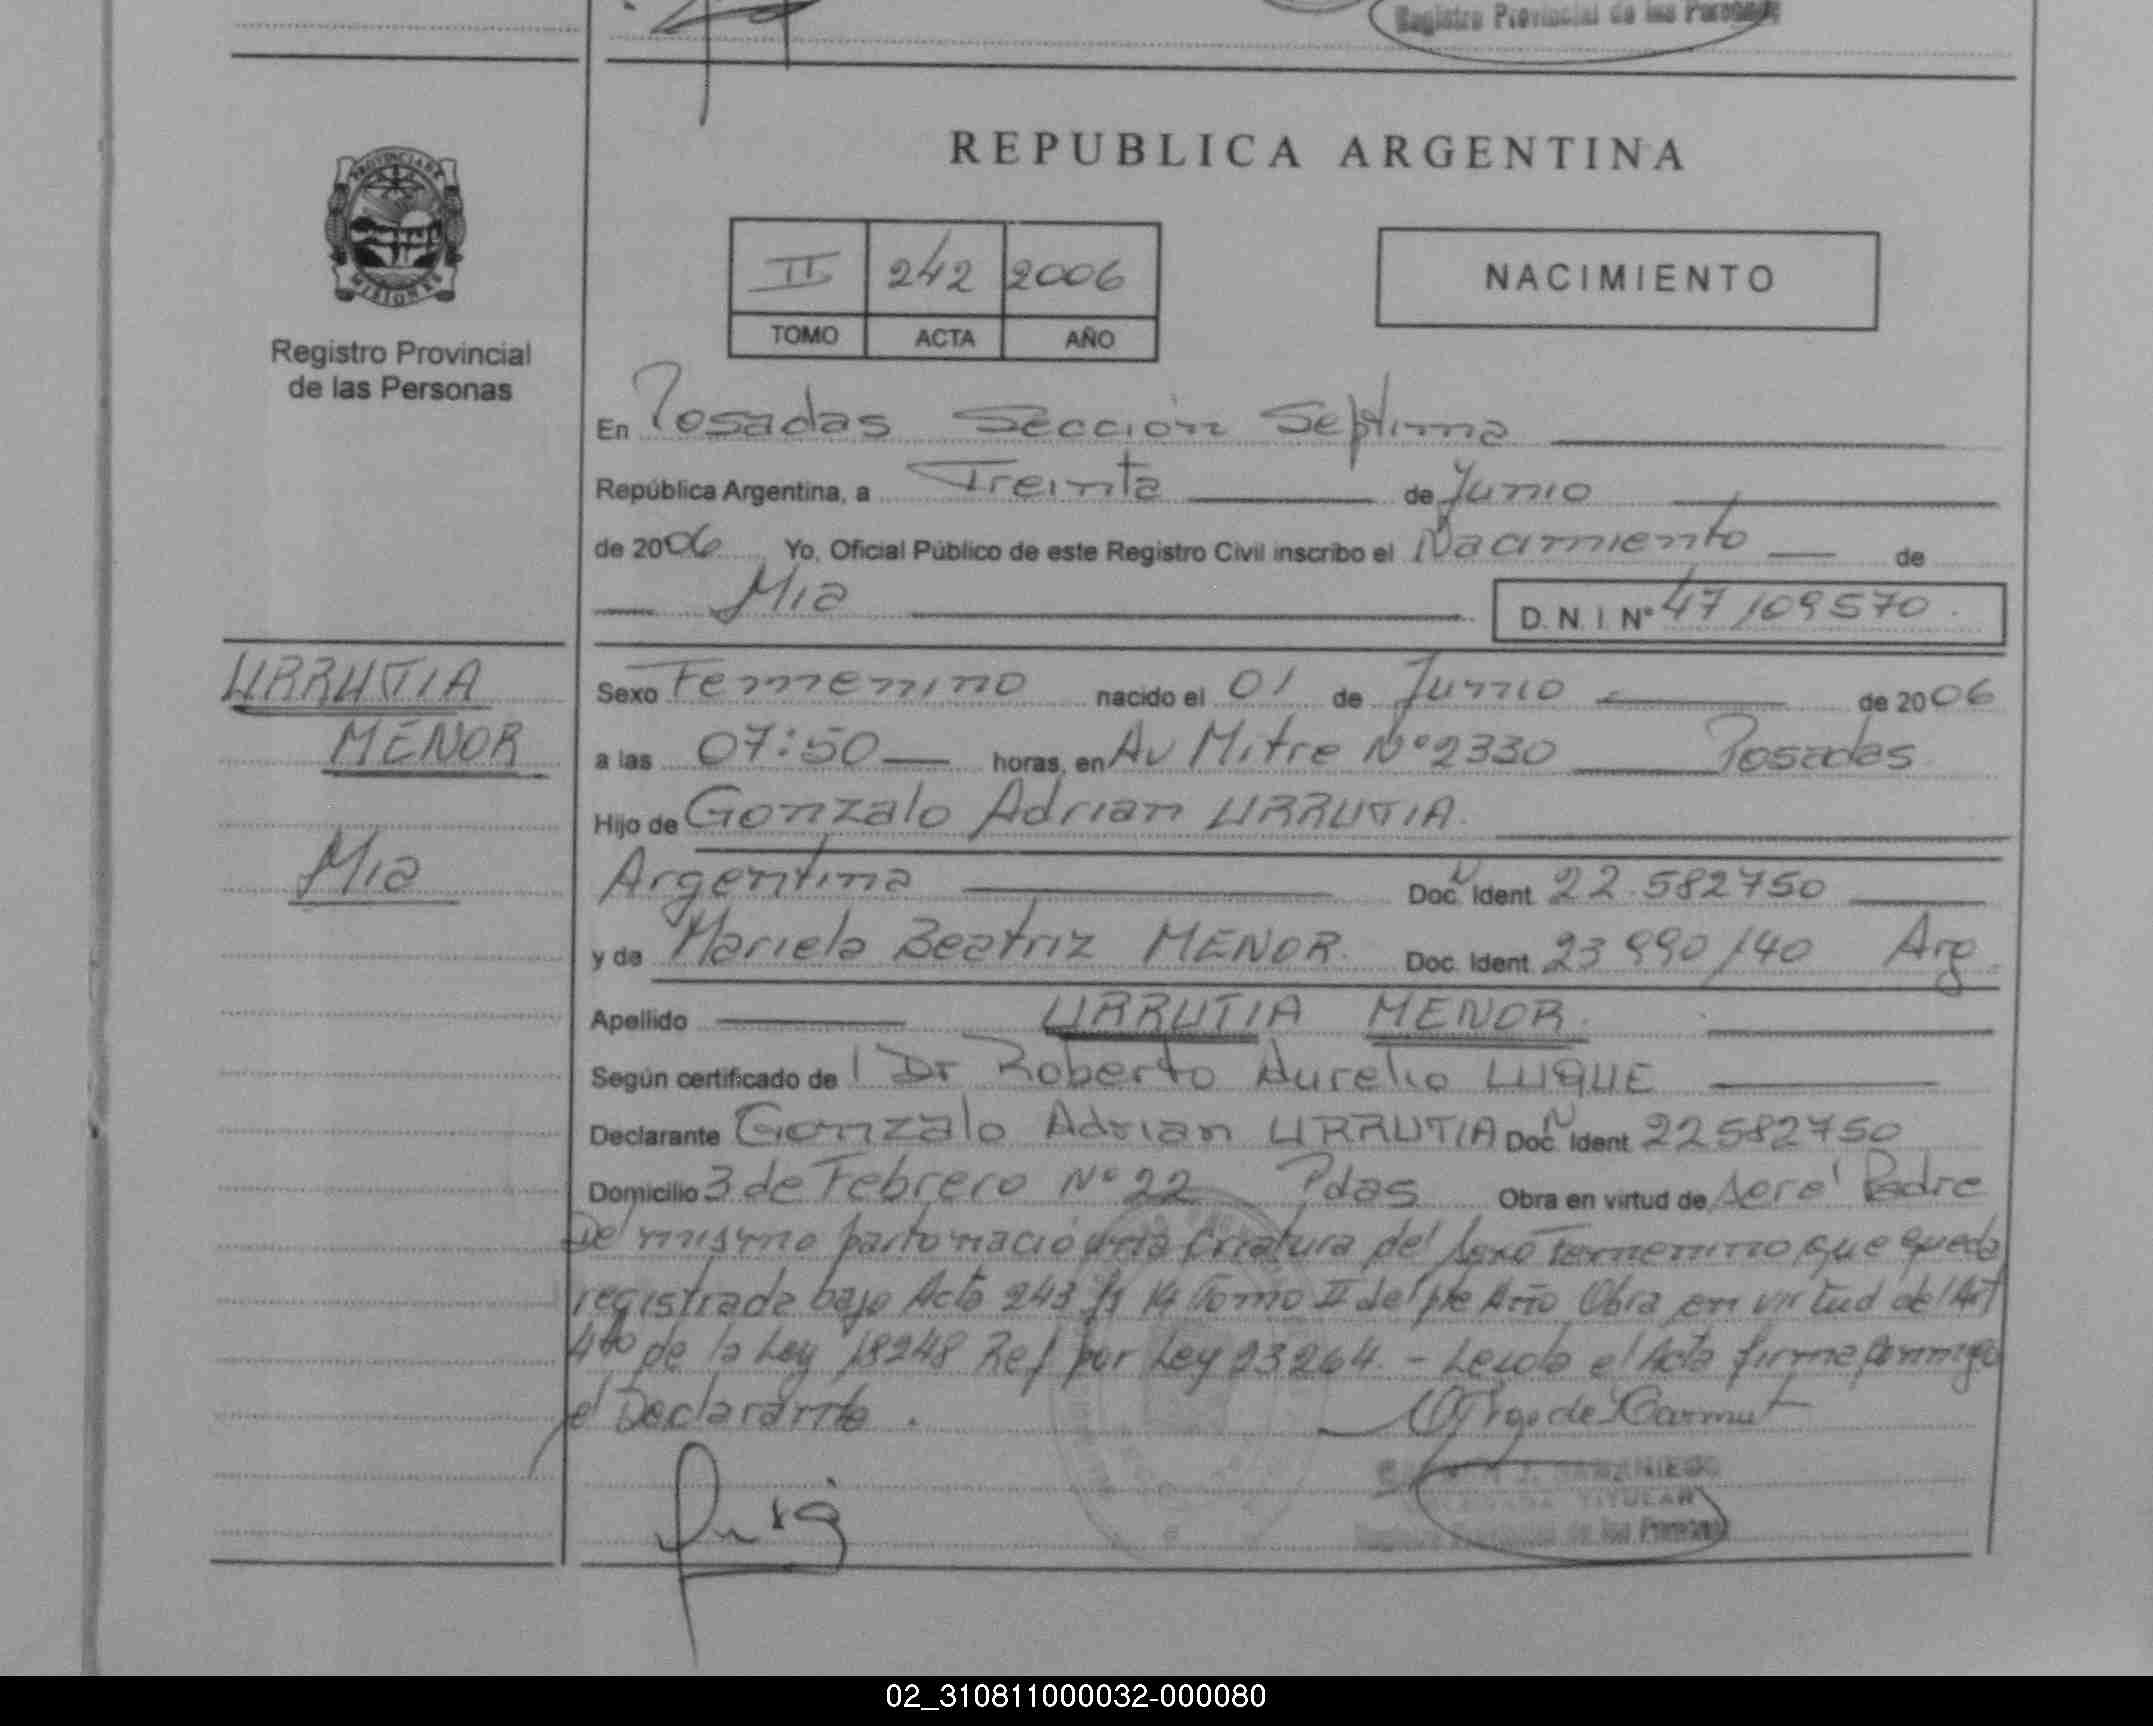 Registro Provincial de las Personas
PROVINCIA DE
MISIONES
Registro Provincial
de las Personas
REPUBLICA ARGENTINA
II 242 2006
TOMO ACTA AÑO
NACIMIENTO
En Posadas Sección Septima
República Argentina, a Treinta de Junio
de 2006 Yo, Oficial Público de este Registro Civil inscribo el Nacimiento de
Mia
D. N. I. Nº 47109570
URRUTIA
MENOR
Mia
Sexo Femenino nacido el 01 de Junio de 2006
a las 07:50 horas, en Av Mitre Nº 2330 Posadas
Hijo de Gonzalo Adrian URRUTIA
Argentina Doc. Ident. 22.582750
y de Mariela Beatriz MENOR. Doc. Ident. 23990140 Arg
Apellido URRUTIA MENOR.
Según certificado de Dr Roberto Aurelio LUQUE
Declarante Gonzalo Adrian URRUTIA Doc. Ident. 22582750
Domicilio 3 de Febrero Nº 22 Pdas Obra en virtud de Padre
Del mismo parto nació una Criatura del Sexo Femenino que queda
registrada bajo Acta 243 14 Tomo II del pte Año Obra en virtud del Art
4to de la Ley 18248 Ref por Ley 23264. - Leida el Acta firma conmigo
el Declarante.
TITULAR
Registro Provincial de las Personas
02_310811000032-000080